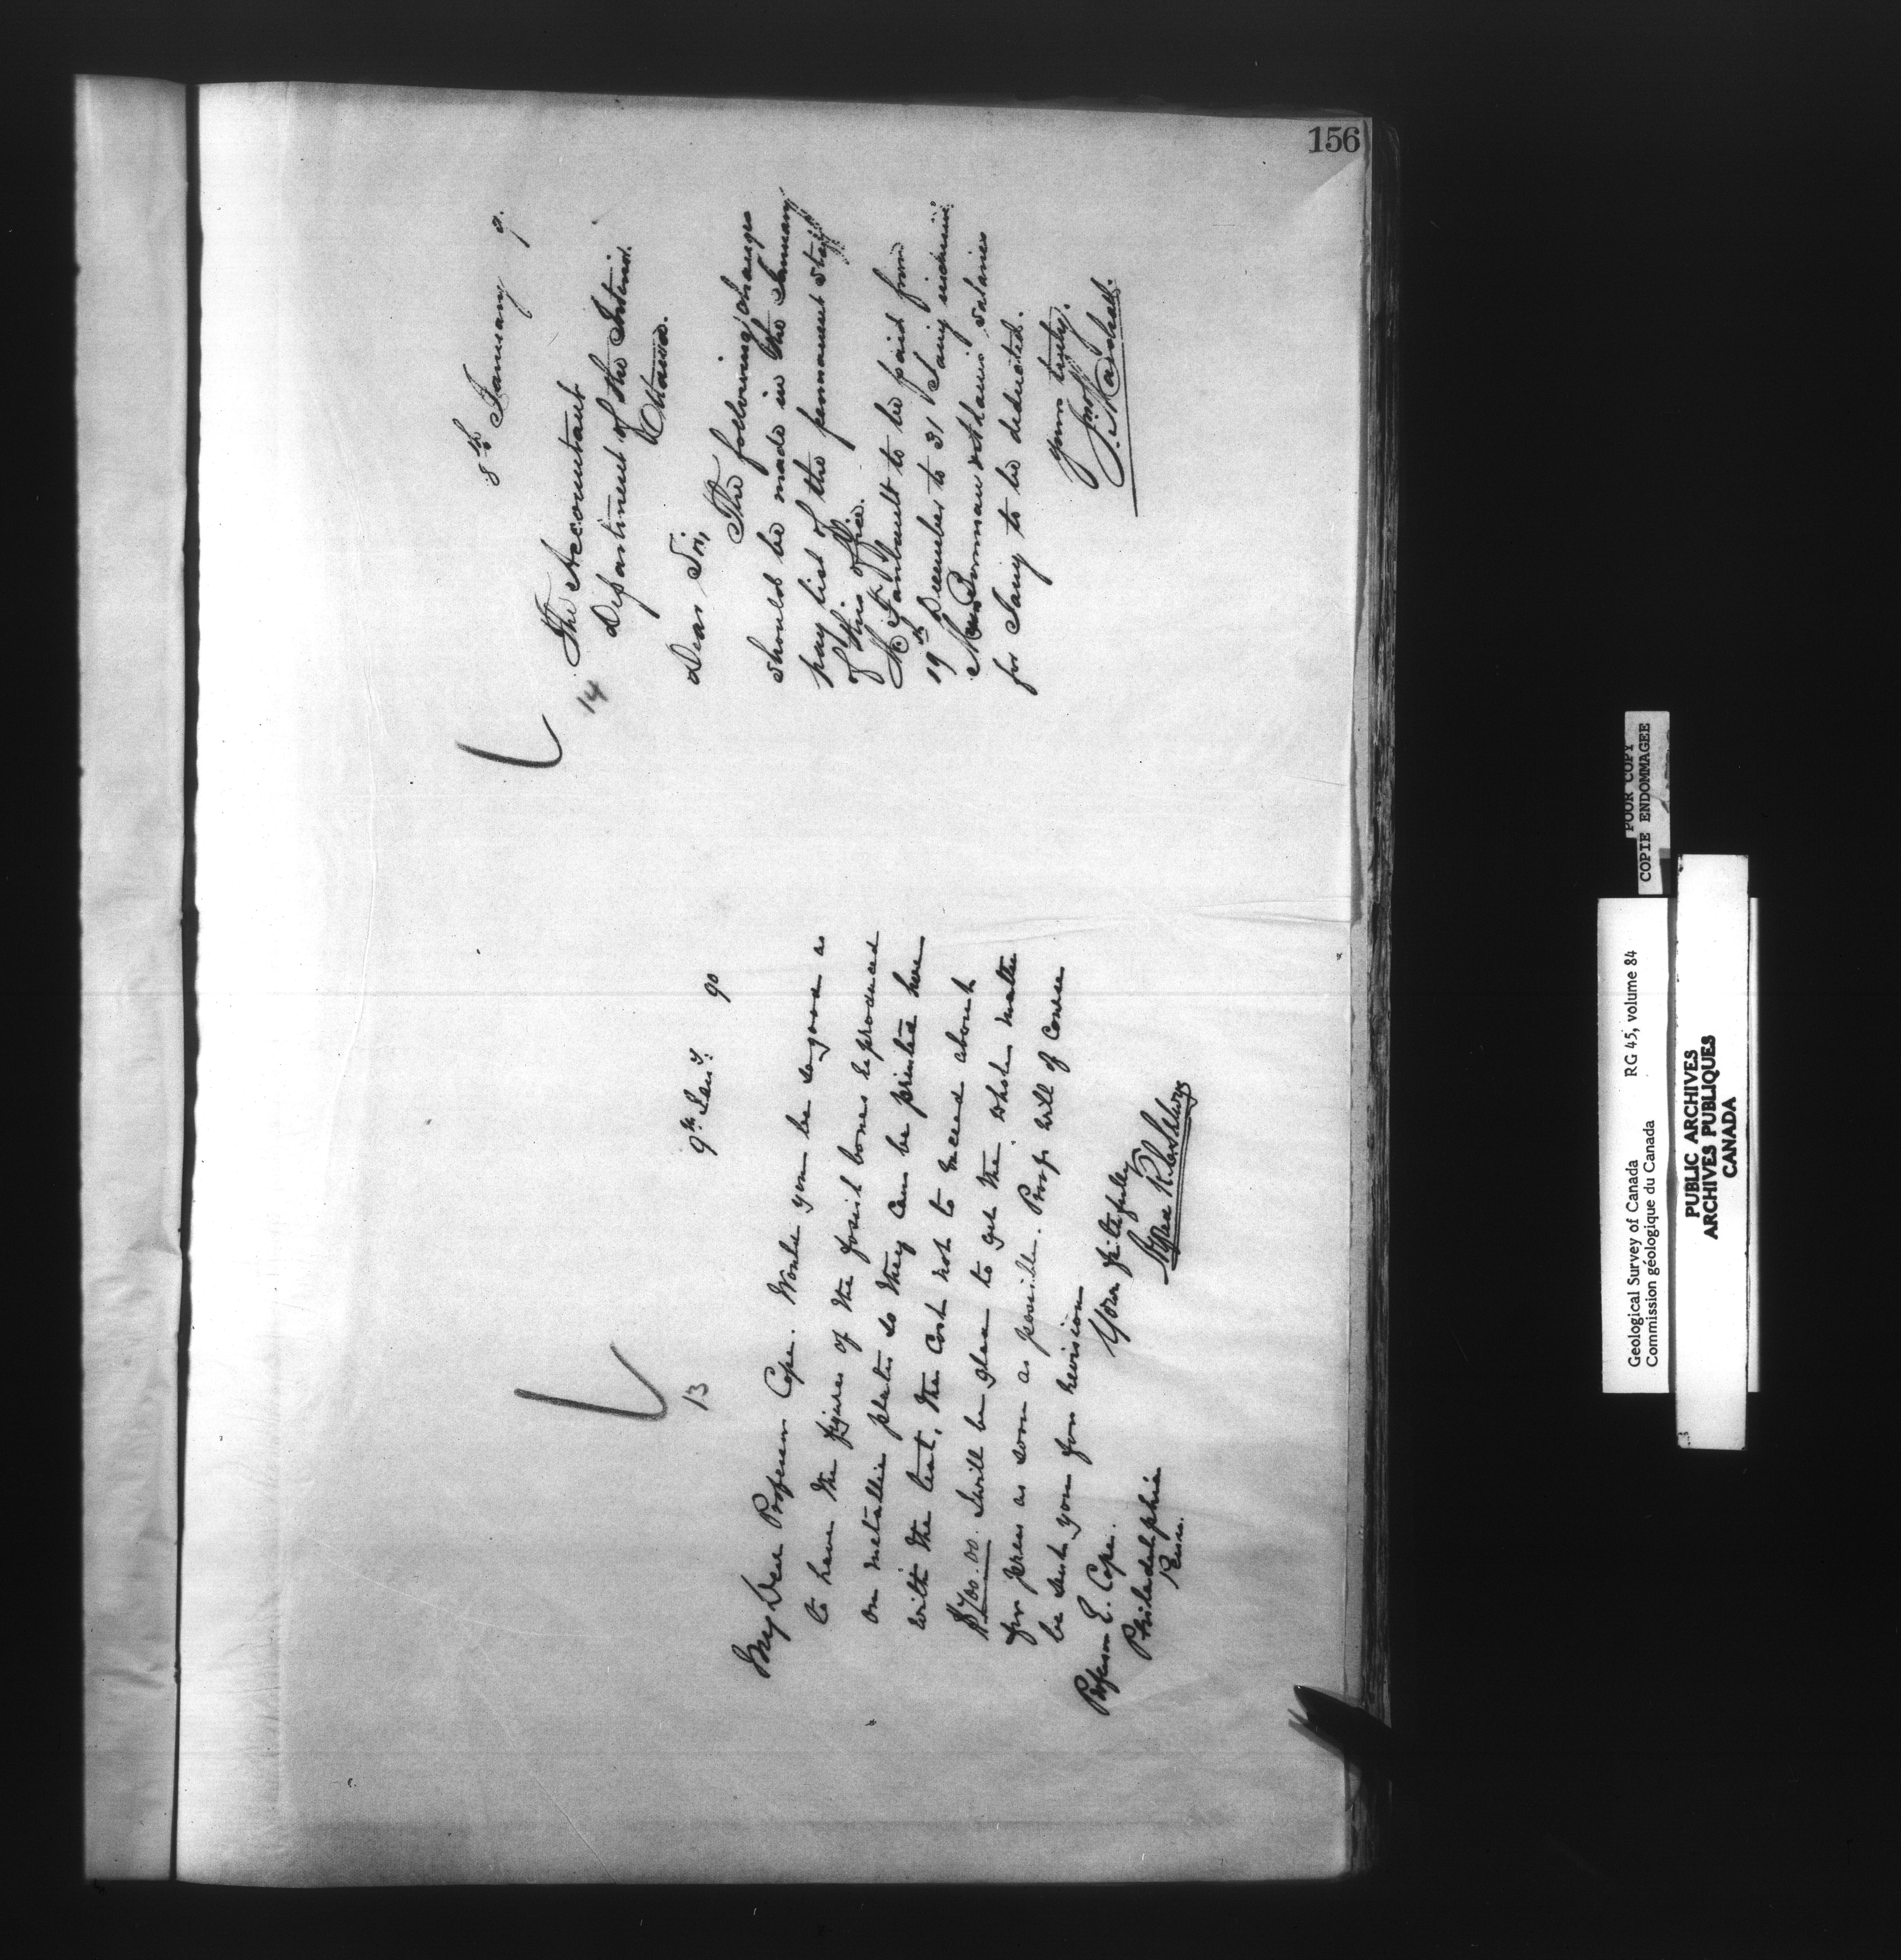 156
13
9th Jany. 90
My Dear Professor Cope. Would you be so good as
to have the figures of the fossil bones reproduced
on metallic plates so they can be printed here
with the text, the cost not to exceed about
$700.00. I will be glad to get the whole matter
for press as soon as possible. Proof will of course
be sent you for revision
Yours faithfully
Alfred R. C. Selwyn
Professor E. Cope.
Philadelphia
Penn.
14
8th January 9.
The Accountant
Department of the Interior.
Ottawa.
Dear Sir,
The following changes
should be made in the January
pay list of the permanent staff
of this office.
to be paid from
19th December to 31 Jany inclusive.
salaries
for Jany to be deducted.
Yours truly.
Jno. Marshall.
POOR COPY
COPIE ENDOMMAGEE
Geological Survey of Canada RG 45, volume 84
Commission géologique du Canada
PUBLIC ARCHIVES
ARCHIVES PUBLIQUES
CANADA